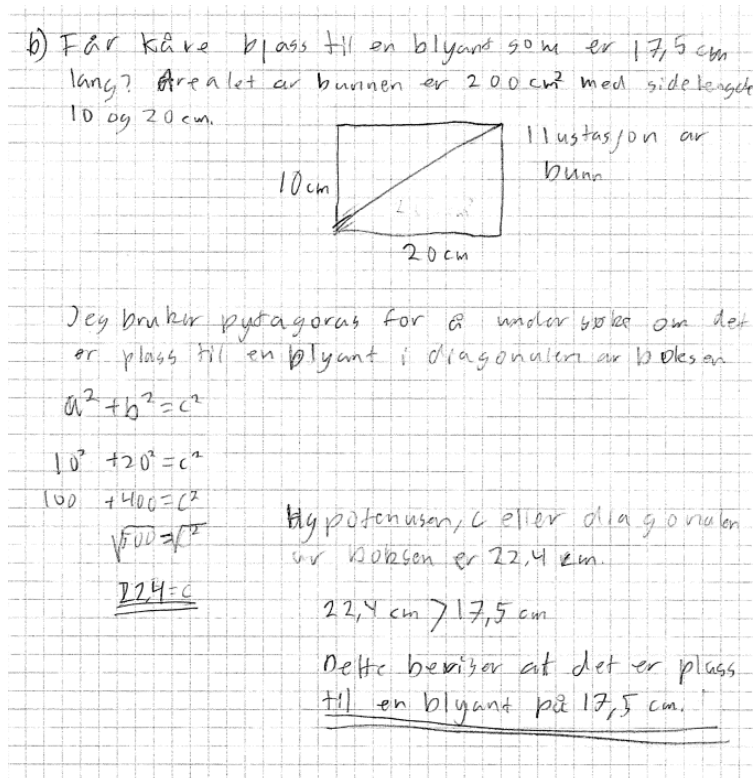 b) Får Kåre plass til en blyant som er 17,5 cm
lang? Arealet av bunnen er 200 cm² med sidelengde
10 og 20 cm.
Illustasjon av
bunn
10 cm
20 cm
Jeg bruker pytagoras for å undersøke om det
er plass til en blyant i diagonalen av boksen
a² + b² = c²
10² + 20² = c²
100 + 400 = c²
√500 = √c²
22,4 = c
Hypotenusen, c eller diagonalen
av boksen er 22,4 cm.
22,4 cm > 17,5 cm
Dette beviser at det er plass
til en blyant på 17,5 cm.